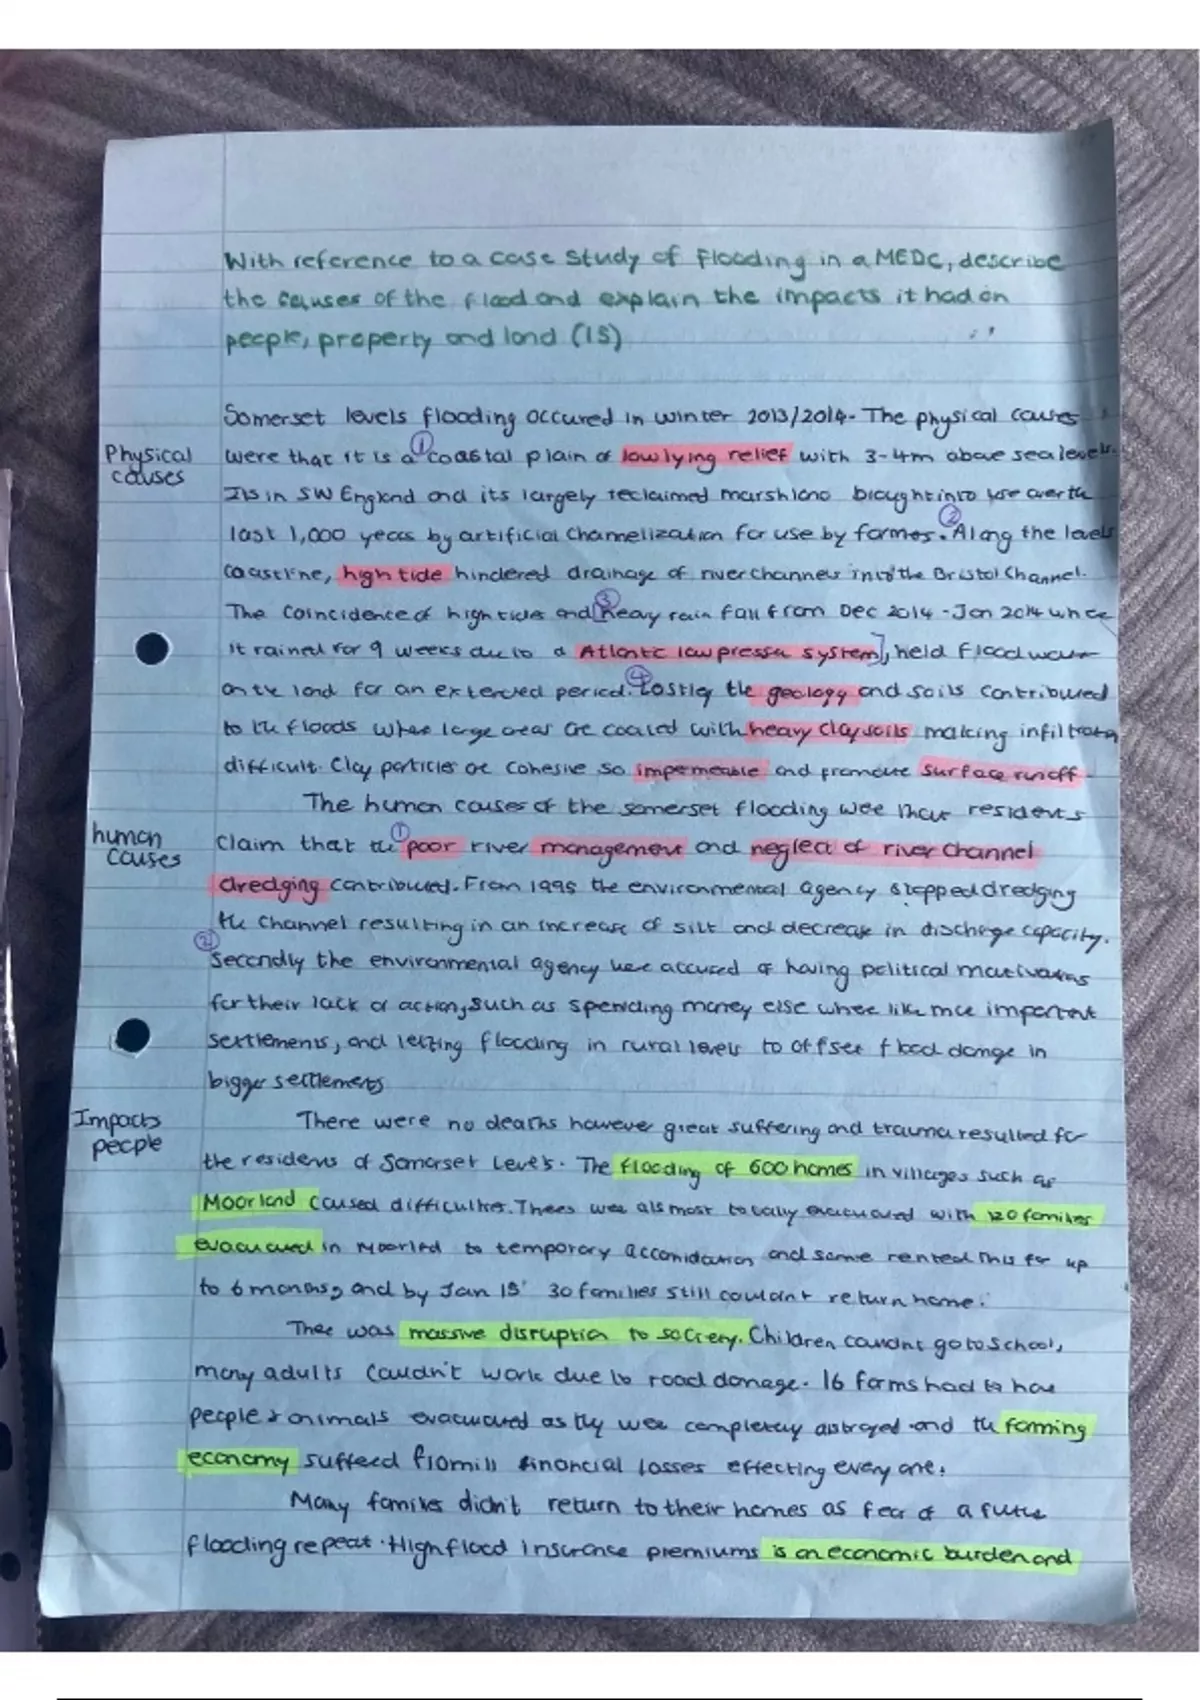 With reference to a case study of flooding in a MEDC, describe
the causes of the flood and explain the impacts it had on
people, property and land (15)
Somerset levels flooding occured in winter 2013/2014. The physical causes
Physical causes
① were that it is a coastal plain of low lying relief with 3-4m above sea levels.
It's in SW England and its largely reclaimed marshland brought into use over the
② last 1,000 years by artificial channelization for use by farmers. Along the levels
coastline, high tide hindered drainage of river channels into the Bristol Channel.
③ The coincidence of high tides and [heavy rain fall from Dec 2014 - Jan 2014 where
it rained for 9 weeks due to a Atlantic low pressure system], held flood water
④ on the land for an extended period. Lastly the geology and soils contributed
to the floods where large areas are coated with heavy clay soils making infiltration
difficult. Clay particles are cohesive so impermeable and promote surface runoff.
The human causes of the somerset flooding were that residents
human causes
① claim that the poor river management and neglect of river channel
dredging contributed. From 1995 the environmental agency stopped dredging
the channel resulting in an increase of silt and decrease in discharge capacity.
② Secondly the environmental agency were accused of having political motivations
for their lack of action, such as spending money else where like more important
settlements, and letting flooding in rural levels to offset flood damage in
bigger settlements
Impacts people
There were no deaths however great suffering and trauma resulted for
the residents of Somerset Levels. The flooding of 600 homes in villages such as
Moorland caused difficulties. There was almost totally evacuated with 120 families
evacuated in Moorland to temporary accomidation and some rented this for up
to 6 months, and by Jan 15' 30 families still couldn't return home.
There was massive disruption to society. Children couldn't go to school,
many adults couldn't work due to road damage. 16 farms had to have
people & animals evacuated as they were completely and the farming
economy suffered from ill financial losses effecting everyone.
Many families didn't return to their homes as fear of a future
flooding repeat. High flood insurance premiums is an economic burden and